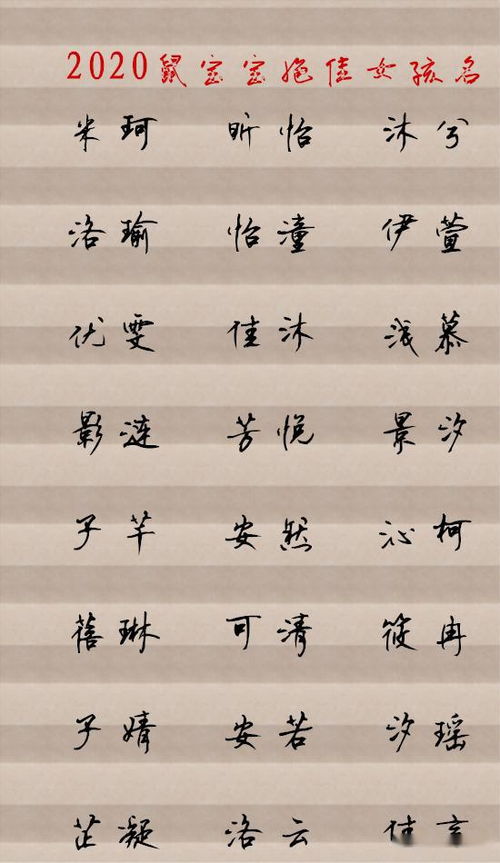 2020鼠宝宝绝佳女孩名
米珂 昕怡 沐兮
洛瑜 怡潼 伊萱
优雯 佳沐 浅慕
影涟 芳悦 景汐
子芊 安然 沁柯
蓓琳 可清 筱冉
子婧 安若 汐瑶
芷凝 洛云 佳言